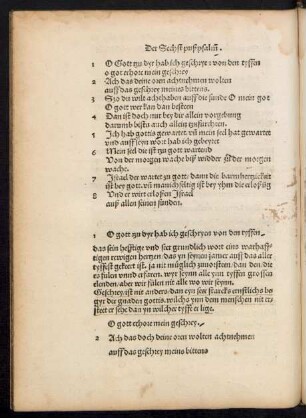 Der Sechst pußpsalm̃.
1 O Gott zu dyr hab ich geschryrẽ von den tyffen
o got erhore mein geschrey
2 Ach das deine oren achtnehmen wolten
auff das geschrey meines bittens.
3 Szo du wilt achthaben auff die sunde O mein got
O got wer kan dan bestehn
4 Dan ist doch nur bey dir allein vorgebung
darumb bistu auch allein zufurchten.
5 Ich hab gottis gewartet vñ mein seel hat gewartet
vnd auff seyn wort hab ich gebeytet
6 Mein seel die ist zu gott wartend
Von der morgen wache biß widder zů der morgen
wache.
7 Israel der warte zu gott/ dann die barmhertzickeit
ist bey gott. vñ manchfeltig ist bey yhm die erlosũg
8 Vnd er wirt erloßen Israel
auß allen seinen sunden.
1 O gott zu dyr hab ich geschryen von den tyffen.
das sein hefftige vnd seer grundlich wort eins warhaff-
tigen rewigen hertzen. das yn seynen jamer auff das aller
tyffist gekert ist. ja nit muglich zuuorstehen. dan den die
es fulen vnnd erfaren. wyr seynn alle yn tyffen grossen
elenden. aber wir fulen nit alle wo wir seynn.
Geschrey. ist nit anders. dan eyn seer starcks ernstlichs be
gyr der gnaden gottis. wilchs ynn dem menschen nit er-
steet er sehe dan yn wilcher tyffe er lige.
O gott erhore mein geschrey.
2 Ach das doch deine oren wolten achtnehmen
auff das geschrey meins bittens